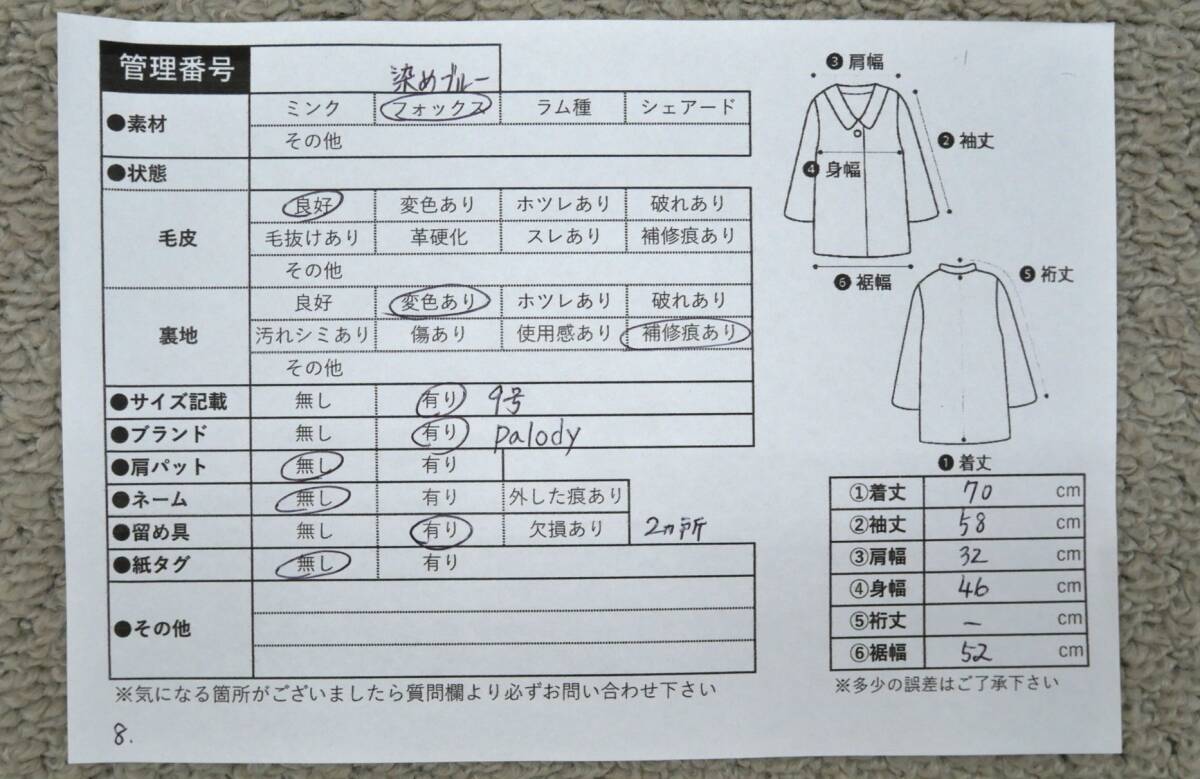 管理番号
染めブルー
●素材 ミンク フォックス ラム種 シェアード
その他
●状態
毛皮 良好 変色あり ホツレあり 破れあり
毛抜けあり 革硬化 スレあり 補修痕あり
その他
裏地 良好 変色あり ホツレあり 破れあり
汚れシミあり 傷あり 使用感あり 補修痕あり
その他
●サイズ記載 無し 有り 9号
●ブランド 無し 有り palody
●肩パット 無し 有り
●ネーム 無し 有り 外した痕あり
●留め具 無し 有り 欠損あり 2ヵ所
●紙タグ 無し 有り
●その他
※気になる箇所がございましたら質問欄より必ずお問い合わせ下さい
8.
❸肩幅
❷袖丈
❹身幅
❻裾幅
❺裄丈
❶着丈
①着丈 70 cm
②袖丈 58 cm
③肩幅 32 cm
④身幅 46 cm
⑤裄丈 – cm
⑥裾幅 52 cm
※多少の誤差はご了承下さい